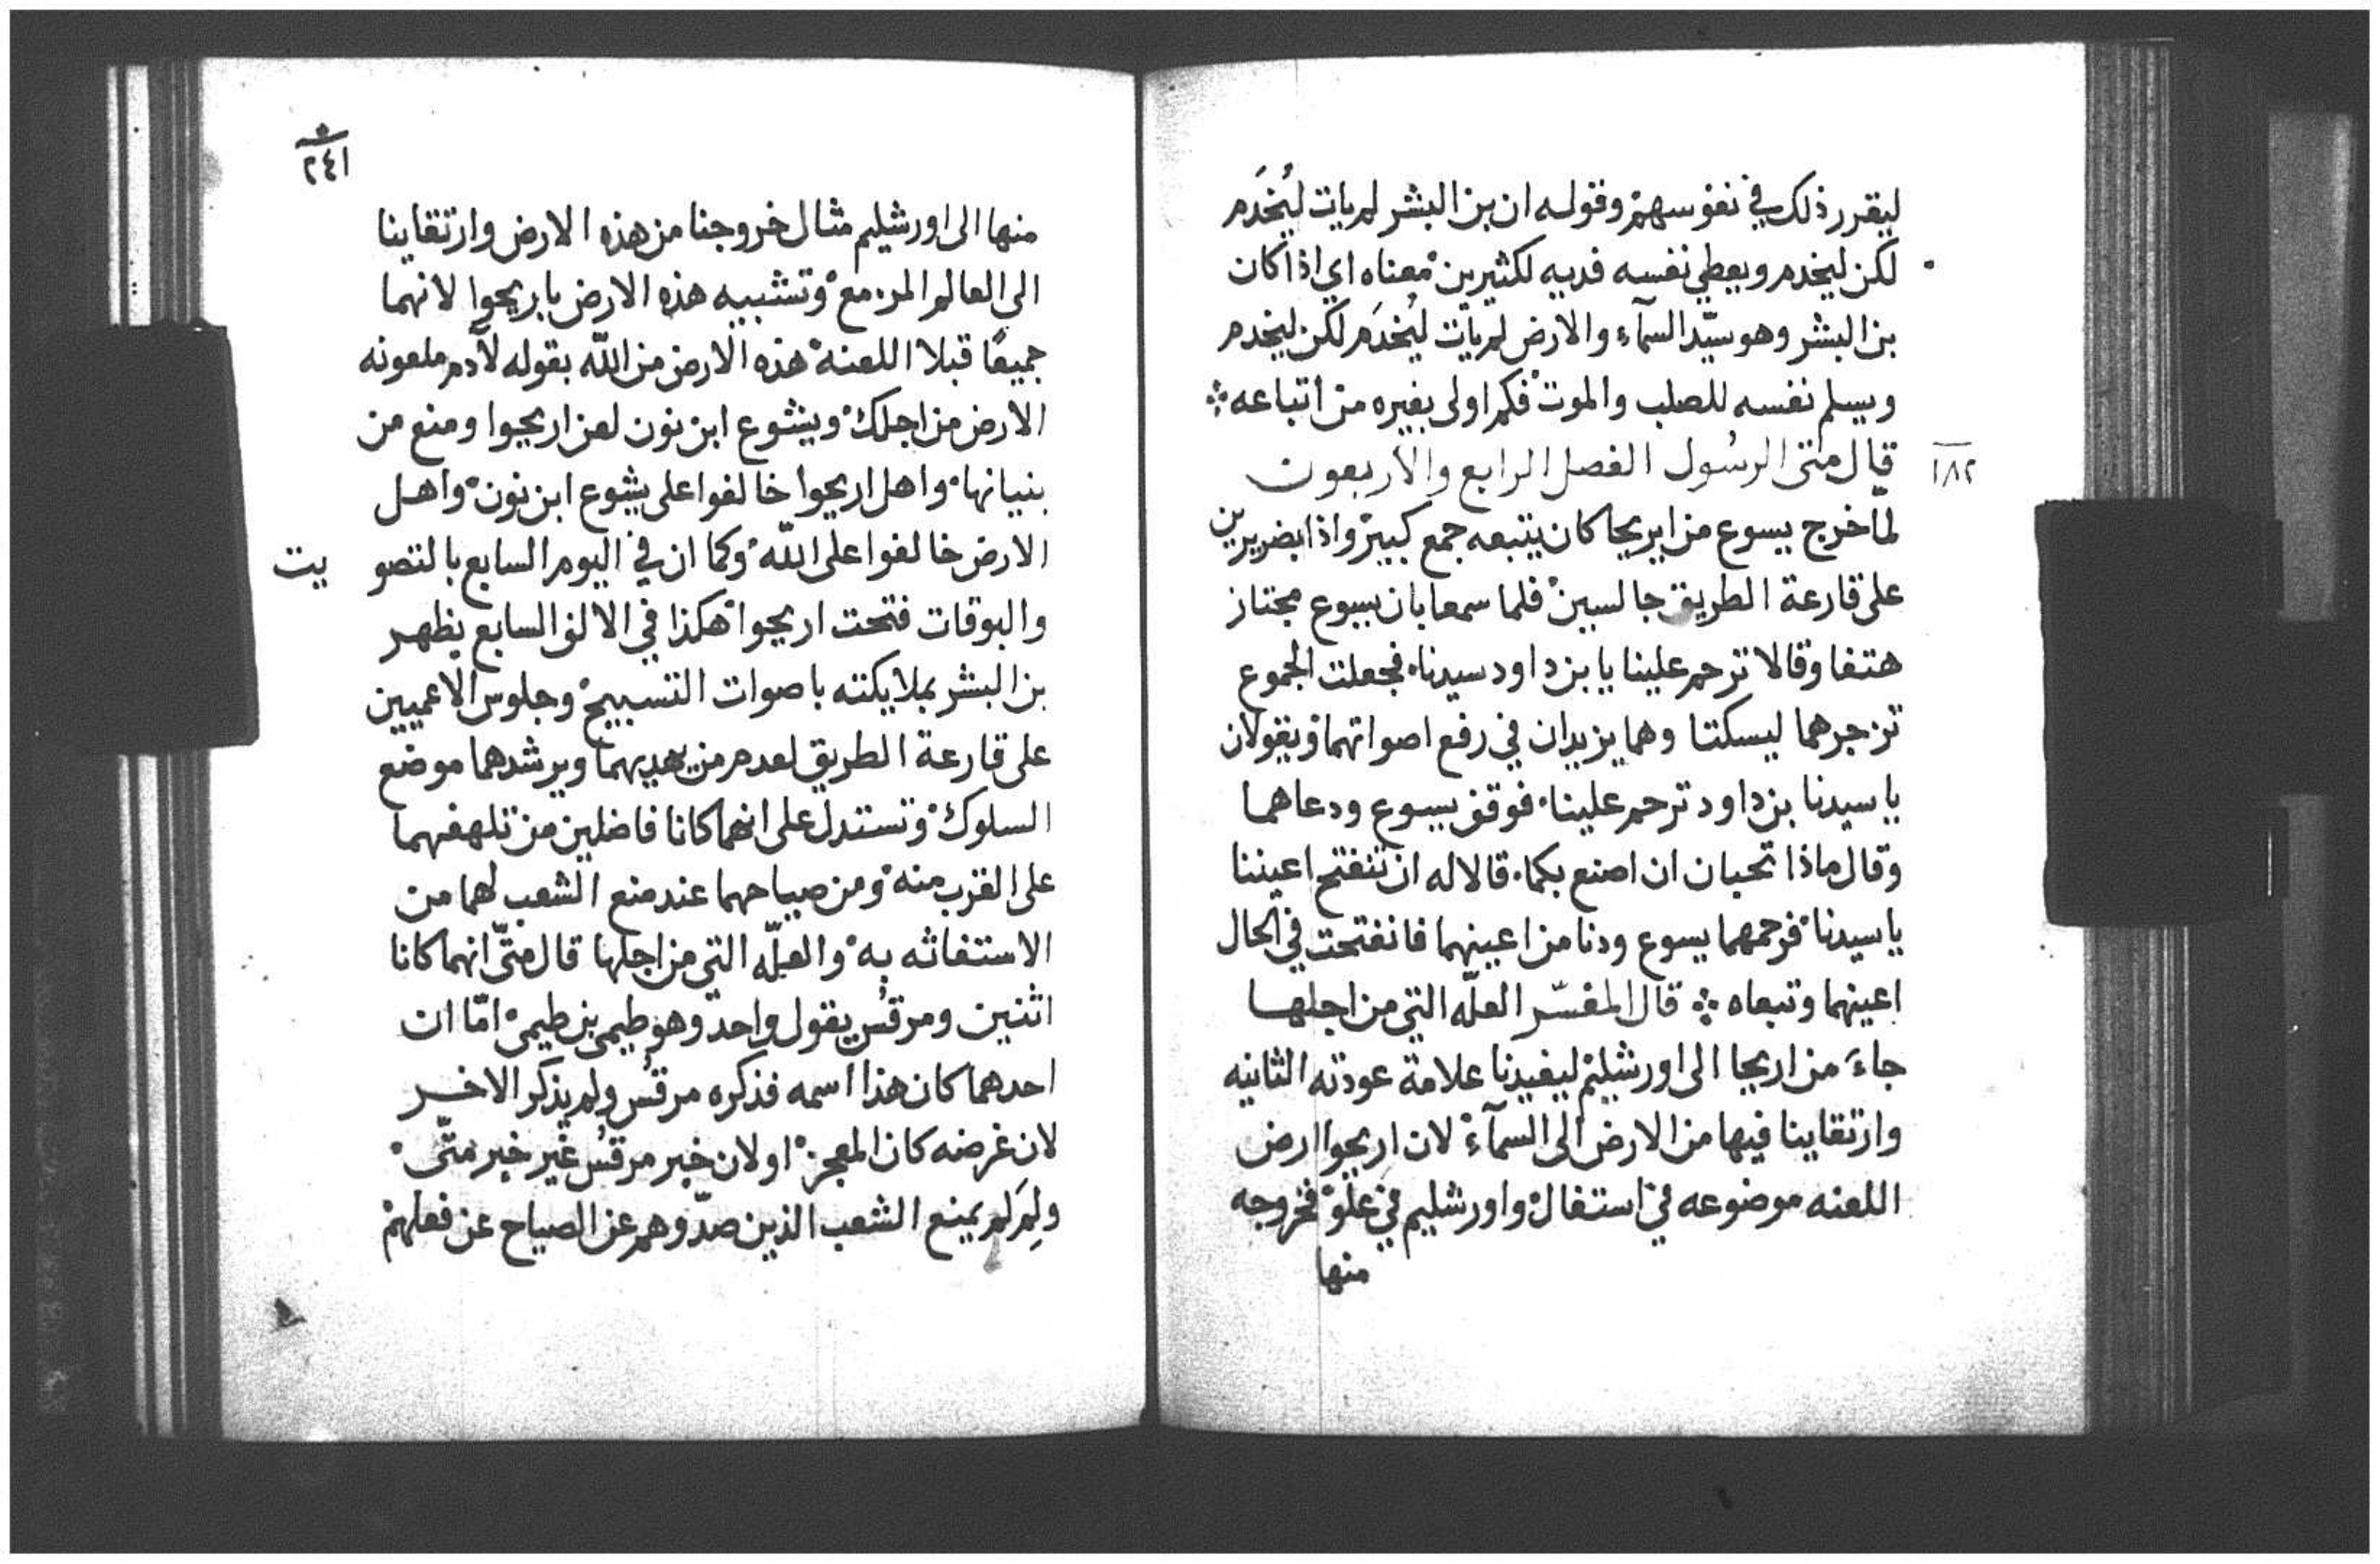 ليقرر ذلك في نفوسهم وقوله ان بن البشر لم يات ليُخدَم
لكن ليخدم ويعطي نفسه فديه لكثيرين معناه اي اذا كان
بن البشر وهو سيّد السمآء والارض لم يأت ليُخدَم لكن ليخدم
ويسلم نفسه للصلب والموت فكم اولى بغيره من أتباعه
١٨٢
قال متى الرسُول الفصل الرابع والاربعون
لمّا خرج يسوع من ايريحا كان يتبعه جمع كبير واذا بضريرين
على قارعة الطريق جالسين فلما سمعا بان يسوع مجتاز
هتفا وقالا ترحم علينا يا بن داود سيدنا فجعلت الجموع
تزجرهما ليسكتا وهما يزيدان في رفع اصواتهما ويقولان
يا سيدنا بن داود ترحم علينا فوقف يسوع ودعاهما
وقال ماذا تحبان ان اصنع بكما قالا له ان تنفتح اعيننا
يا سيدنا فرحمهما يسوع ودنا من اعينهما فانفتحت في الحال
اعينهما وتبعاه قال المفسّر العلّه التي من اجلها
جاءَ من اريحا الى اورشليم ليفيدنا علامة عودته الثانيه
وارتقاينا فيها من الارض الى السمآء لان اريحوا ارض
اللعنه موضوعه في استفال واورشليم في علوّ فخروجه
منها
٢٤١
منها الى اورشليم مثال خروجنا من هذه الارض وارتقاينا
الى العالم المزمع وتشبيه هذه الارض باريحوا لانهما
جميعًا قبلا اللعنة هذه الارض من اللّه بقوله لآدم ملعونه
الارض من اجلك ويشوع ابن نون لعن اريحوا ومنع من
بنيانها واهل اريحوا خالفوا على يشوع ابن نون واهل
الارض خالفوا على اللّه وكما ان في اليوم السابع بالتصويت
والبوقات فتحت اريحوا هكذا في الالف السابع يظهر
بن البشر بملايكته باصوات التسبيح وجلوس الاعميين
على قارعة الطريق لعدم من يهديهما ويرشدهما موضع
السلوك وتستدل على انهما كانا فاضلين من تلهفهما
على القرب منه ومن صياحهما عند منع الشعب لهما من
الاستغاثه به والعلّه التي من اجلها قال متّى انهما كانا
اثنين ومرقُس يقول واحد وهو طيمى بن طيمى امّا ان
احدهما كان هذا اسمه فذكره مرقُس ولم يذكر الاخر
لان غرضه كان المعجز او لان خبر مرقُس غير خبر متّى
ولِمَ لم يمنع الشعب الذين صدّوهم عن الصياح عن فعلهم